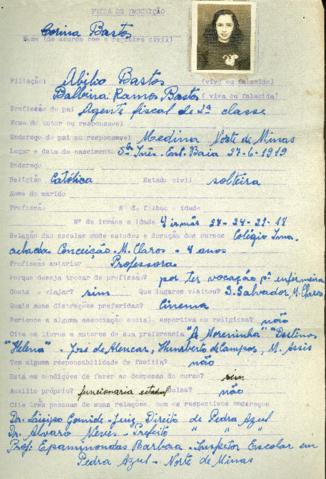 FICHA DE INSCRIÇÃO
Corina Bastos
Nome (de acordo com o registro civil)
Filiação: Abilio Bastos (vivo ou falecido)
Balbina Ramos Bastos (viva ou falecida)
Profissão do pai Agente fiscal de 4ª classe
Nome do tutor ou responsavel
Endereço do pai ou responsavel Medina Norte de Minas
Lugar e data do nascimento Baía 27-6-1919
Endereço
Religião Católica Estado civil solteira
Nome do marido
Profissão Nº de filhos e idade
Nº de irmãos e idade 4 irmãs 27-24-21-18
Relação das escolas onde estudou e duração dos cursos Colégio Imaculada
Conceição - M. Claros - 4 anos
Profissão anterior Professora
Porque deseja trocar de profissão? por ter vocação pª enfermeira
Gosta de viajar? sim Que lugares visitou? S. Salvador, M. Claros
Quais suas distrações preferidas? Cinema
Pertence a alguma associação social, esportiva ou religiosa? não
Cite os livros e autores de sua preferencia "A Moreninha"
"Helena" - José de Alencar, Humberto de Campos, M. Assis
Tem alguma responsabilidade de familia? não
Está em condições de fazer as despesas do curso? sim
Auxilio próprio? funcionaria estadual Bolsa? não
Cite três pessoas de suas relações, com os respectivos endereços
Juiz Direito de Pedra Azul
Dr. Alvaro Neves - Prefeito " "
Prof. Epaminondas Barbosa - Inspetor Escolar em
Pedra Azul - Norte de Minas